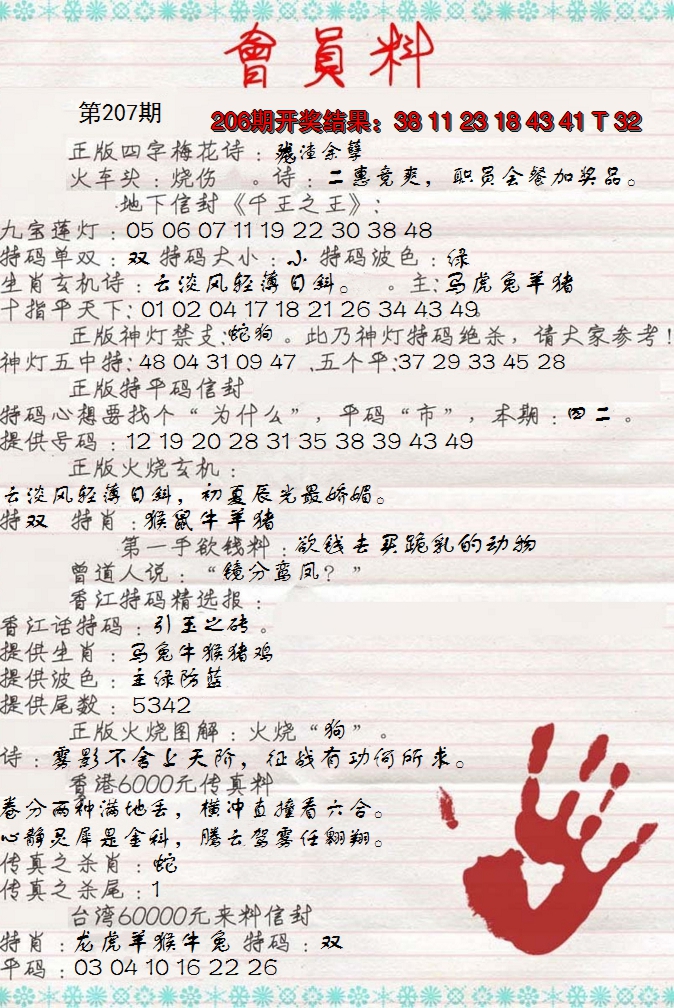 會員料
第207期
206期开奖结果：38 11 23 18 43 41 T 32
正版四字梅花诗：残渣余孽
火车头：烧伤 。诗：二惠竞爽，职员会餐加奖品。
地下信封《千王之王》：
九宝莲灯：05 06 07 11 19 22 30 38 48
特码单双：双 特码大小：小 特码波色：绿
生肖玄机诗：云淡风轻薄日斜。 。主：马虎兔羊猪
十指平天下：01 02 04 17 18 21 26 34 43 49
正版神灯禁支：蛇狗 。此乃神灯特码绝杀，请大家参考！
神灯五中特：48 04 31 09 47 、五个平：37 29 33 45 28
正版特平码信封
特码心想要找个“为什么”，平码“市”，本期：四二 。
提供号码：12 19 20 28 31 35 38 39 43 49
正版火烧玄机：
云淡风轻薄日斜，初夏辰光最娇媚。
特双 特肖：猴鼠牛羊猪
第一手欲钱料：欲钱去买跪乳的动物
曾道人说：“镜分鸾凤？”
香江特码精选报：
香江话特码：引玉之砖 。
提供生肖：马兔牛猴猪鸡
提供波色：主绿防蓝
提供尾数：5342
正版火烧图解：火烧“狗”。
诗：雾影不舍上天阶，征战有功何所求。
香港6000元传真料
卷分两种满地丢，横冲直撞看六合。
心静灵犀是金科，腾云驾雾任翱翔。
传真之杀肖：蛇
传真之杀尾：1
台湾60000元来料信封
特肖：龙虎羊猴牛兔 特码：双
平码：03 04 10 16 22 26